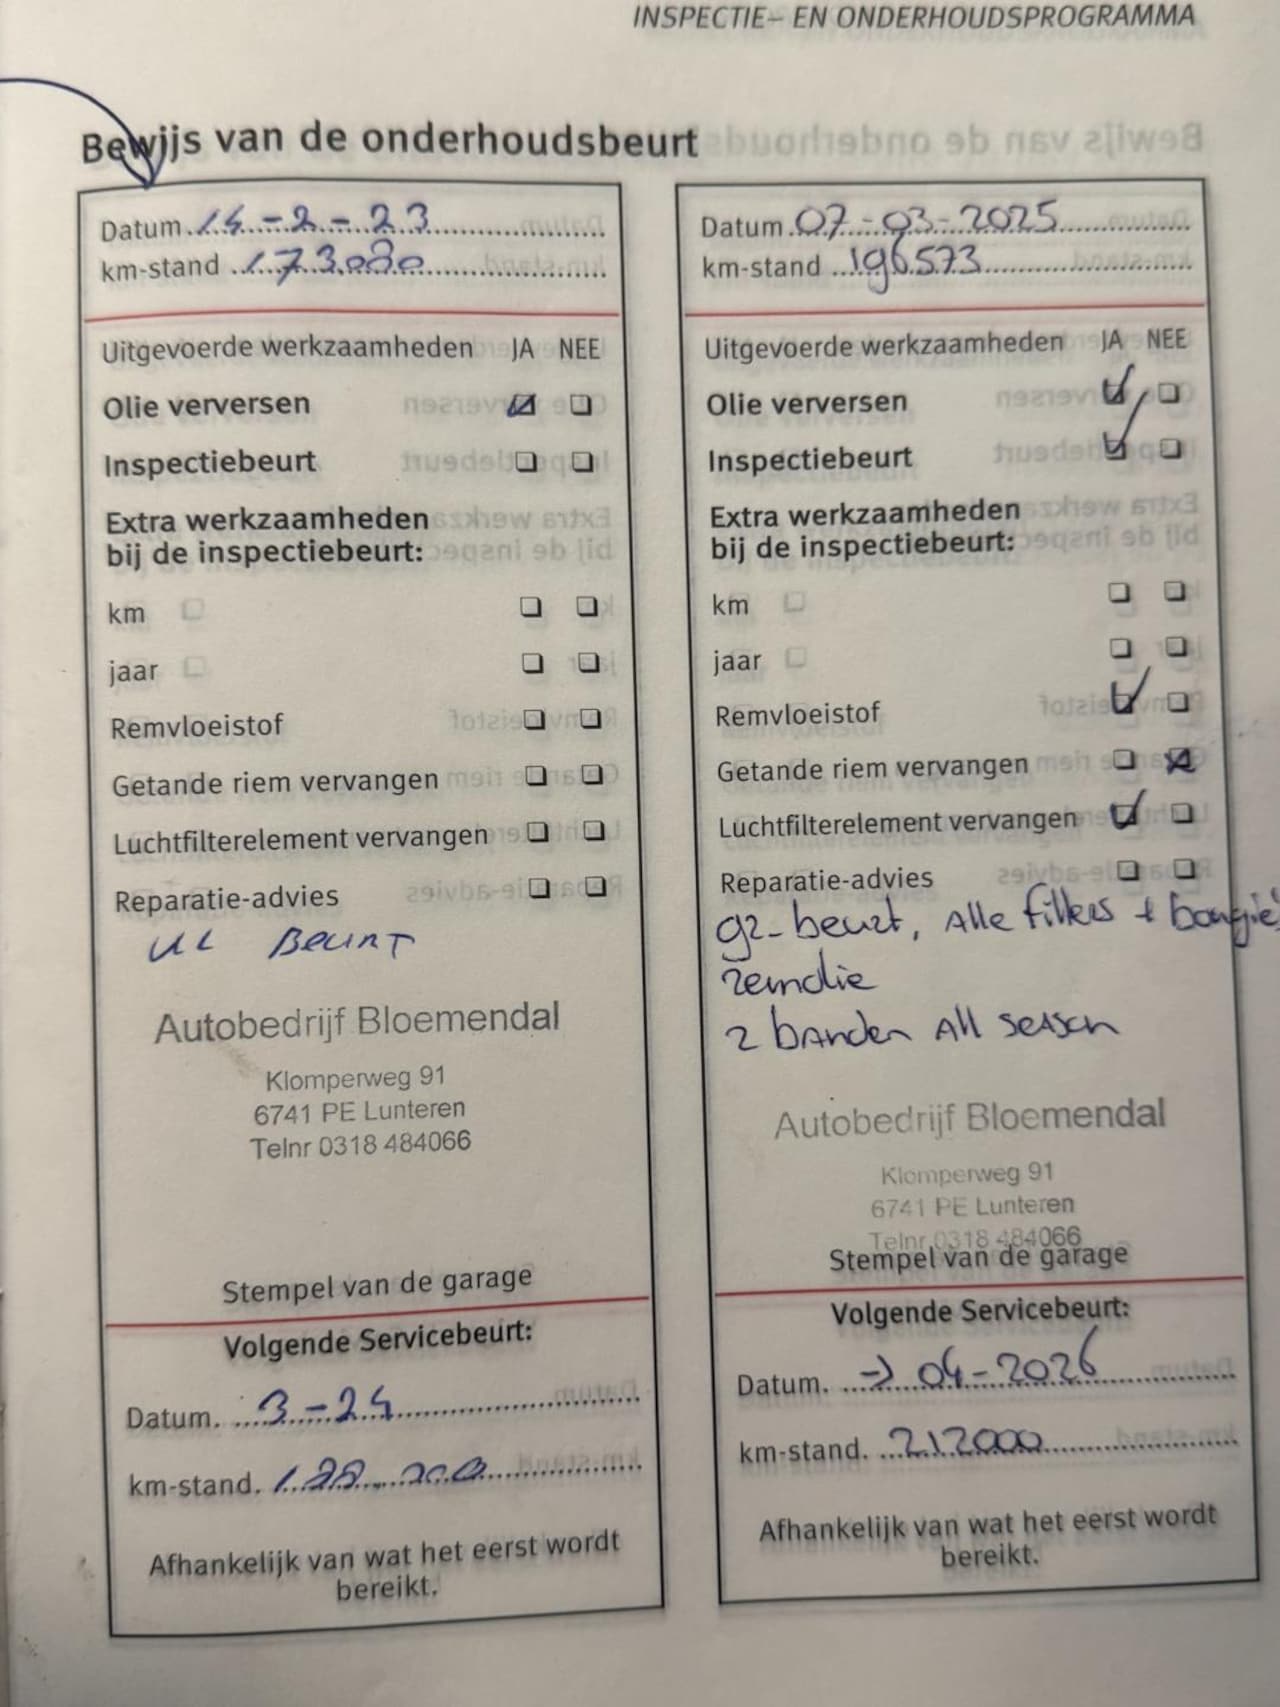 INSPECTIE- EN ONDERHOUDSPROGRAMMA
Bewijs van de onderhoudsbeurt
Datum 14-2-23
km-stand 173.080
Uitgevoerde werkzaamheden JA NEE
Olie verversen
Inspectiebeurt
Extra werkzaamheden
bij de inspectiebeurt:
km
jaar
Remvloeistof
Getande riem vervangen
Luchtfilterelement vervangen
Reparatie-advies
KL BEURT
Autobedrijf Bloemendal
Klomperweg 91
6741 PE Lunteren
Telnr 0318 484066
Stempel van de garage
Volgende Servicebeurt:
Datum. 3-24
km-stand.
Afhankelijk van wat het eerst wordt
bereikt.
Datum 07-03-2025
km-stand 196573
Uitgevoerde werkzaamheden JA NEE
Olie verversen
Inspectiebeurt
Extra werkzaamheden
bij de inspectiebeurt:
km
jaar
Remvloeistof
Getande riem vervangen
Luchtfilterelement vervangen
Reparatie-advies
gr-beurt, Alle filters + bougie's
remolie
2 banden All season
Autobedrijf Bloemendal
Klomperweg 91
6741 PE Lunteren
Telnr 0318 484066
Stempel van de garage
Volgende Servicebeurt:
Datum. → 04-2026
km-stand. 212000
Afhankelijk van wat het eerst wordt
bereikt.